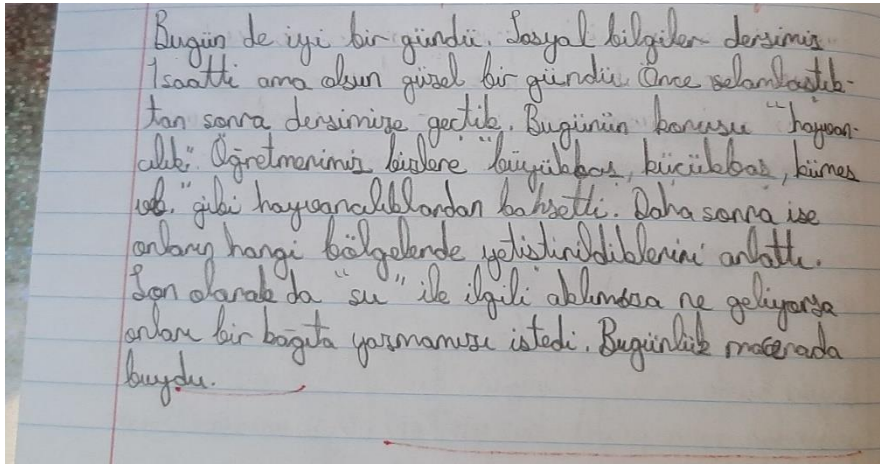 Bugün de iyi bir gündü. Sosyal bilgiler dersimiz
1 saatti ama olsun güzel bir gündü. Önce selamlaştık-
tan sonra dersimize geçtik. Bugünün konusu "hayvan-
cılık." Öğretmenimiz bizlere "büyükbaş, küçükbaş, kümes
vb." gibi hayvancılıklardan bahsetti. Daha sonra ise
onların hangi bölgelerde yetiştirildiklerini anlattı.
Son olarak da "su" ile ilgili aklımıza ne geliyorsa
onları bir kağıta yazmamızı istedi. Bugünlük macerada
buydu.